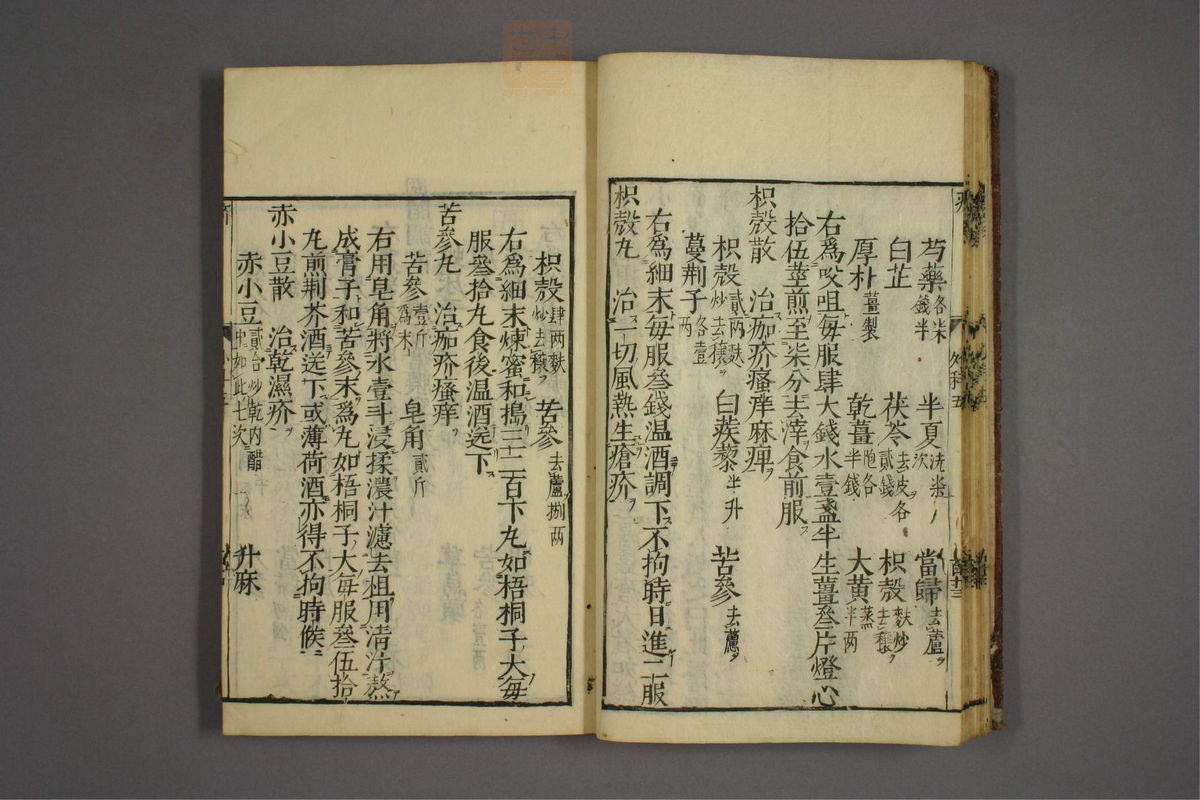 芍藥各柒錢半 半夏洗柒次 當歸去蘆
白芷 茯苓去皮各貳錢 枳殼麩炒去穰
厚朴薑製 乾薑炮各半錢 大黄蒸半两
右為㕮咀每服肆大錢水壹盞半生薑叄片燈心
拾伍莖煎至柒分去滓食前服
枳殼散 治痂疥瘙痒麻痺
枳殼貳两麩炒去穰 白蒺藜半升 苦參去蘆
蔓荆子各壹两
右為細末每服叄錢温酒調下不拘時日進二服
枳殼丸 治一切風熱生瘡疥
枳殼肆两麩炒去穰 苦參去蘆捌两
右為細末煉蜜和搗三二百下丸如梧桐子大每
服叄拾丸食後温酒送下
苦參丸 治痂疥瘙痒
苦參壹斤為末 皂角貳斤
右用皂角將水壹斗浸揉濃汁濾去柤用清汁熬
成膏子和苦參末為丸如梧桐子大每服叄伍拾
丸煎荆芥酒送下或薄荷酒亦得不拘時候
赤小豆散 治乾濕疥
赤小豆貳合炒乾内醋中如此七次 升麻